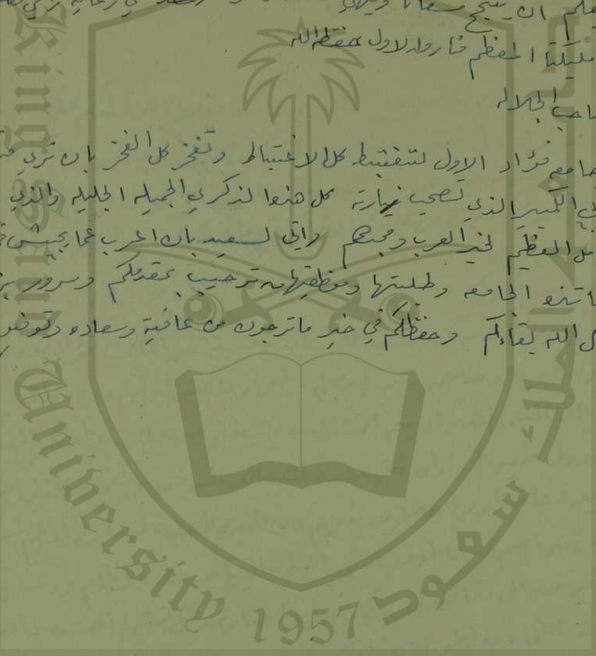 مليكنا المعظم فاروق الاول حفظه الله
صاحب الجلاله
جامعه فؤاد الاول لتغتبط كل الاغتباط وتفخر كل الفخر بان ترى
الكبير الذي تصحب زيارته كل هذه الذكرى الجميله الجليله والذي
العظيم لخير العرب ومجدهم واني لسعيد بان اعرب عما يجيش
اساتذه الجامعه وطلبتها وموظفيها من ترحيب بمقدمكم وسرور
الله بقاءكم وحفظكم في خير ما ترجون من عافية وسعاده وتوفيق
King Saud University
1957
جامعة الملك سعود